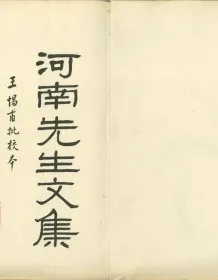 河南先生文集
王惕甫批校本